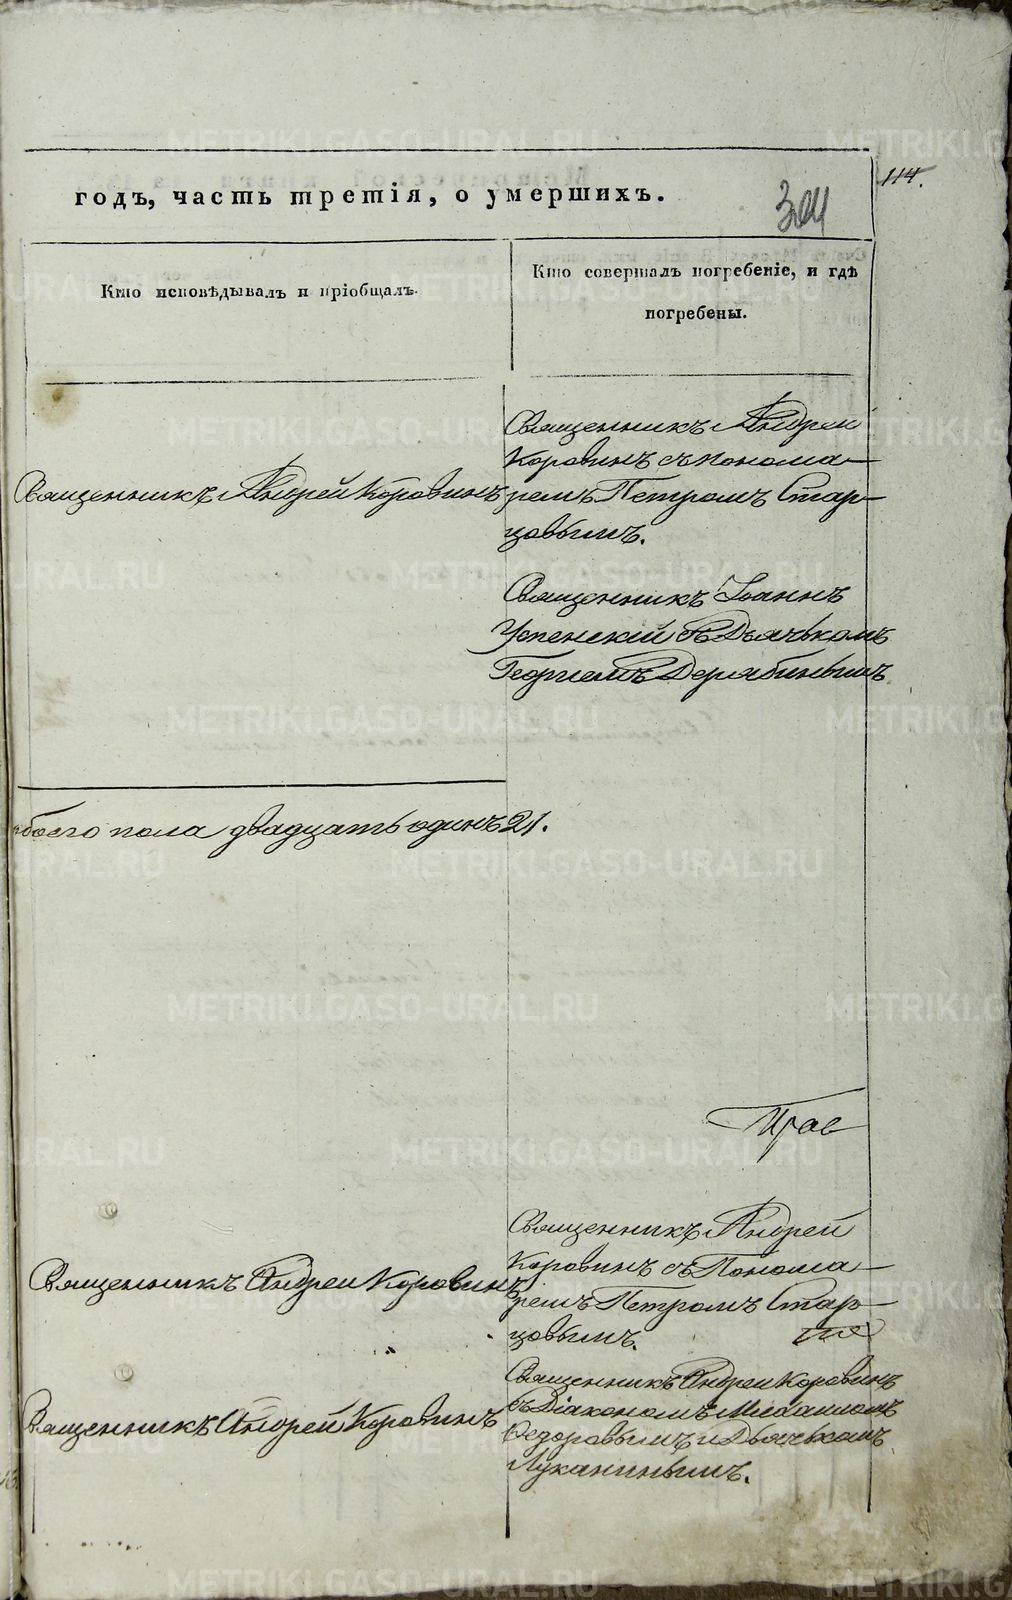 114.
годъ, часть третія, о умершихъ.
304
Кто исповѣдывалъ и пріобщалъ.
Кто совершалъ погребеніе, и гдѣ
погребены.
Священникъ Андрей Коровинъ
Священникъ Андрей
Коровинъ съ понома-
ремъ Петромъ Стар-
цовымъ.
Священникъ Іоаннъ
Успенскій съ Дьячькомъ
Георгіемъ Дерябинымъ
обоего пола двадцать одинъ 21.
Священникъ Андреи Коровинъ
Священникъ Андрей
Коровинъ съ Понома-
ремъ Петромъ Стар-
цовымъ.
Священникъ Андрей Коровинъ
Священникъ Андреи Коровинъ
съ Діакономъ Михаиломъ
Ѳедоровымъ и Дьячькомъ
Луканинымъ.
METRIKI.GASO-URAL.RU